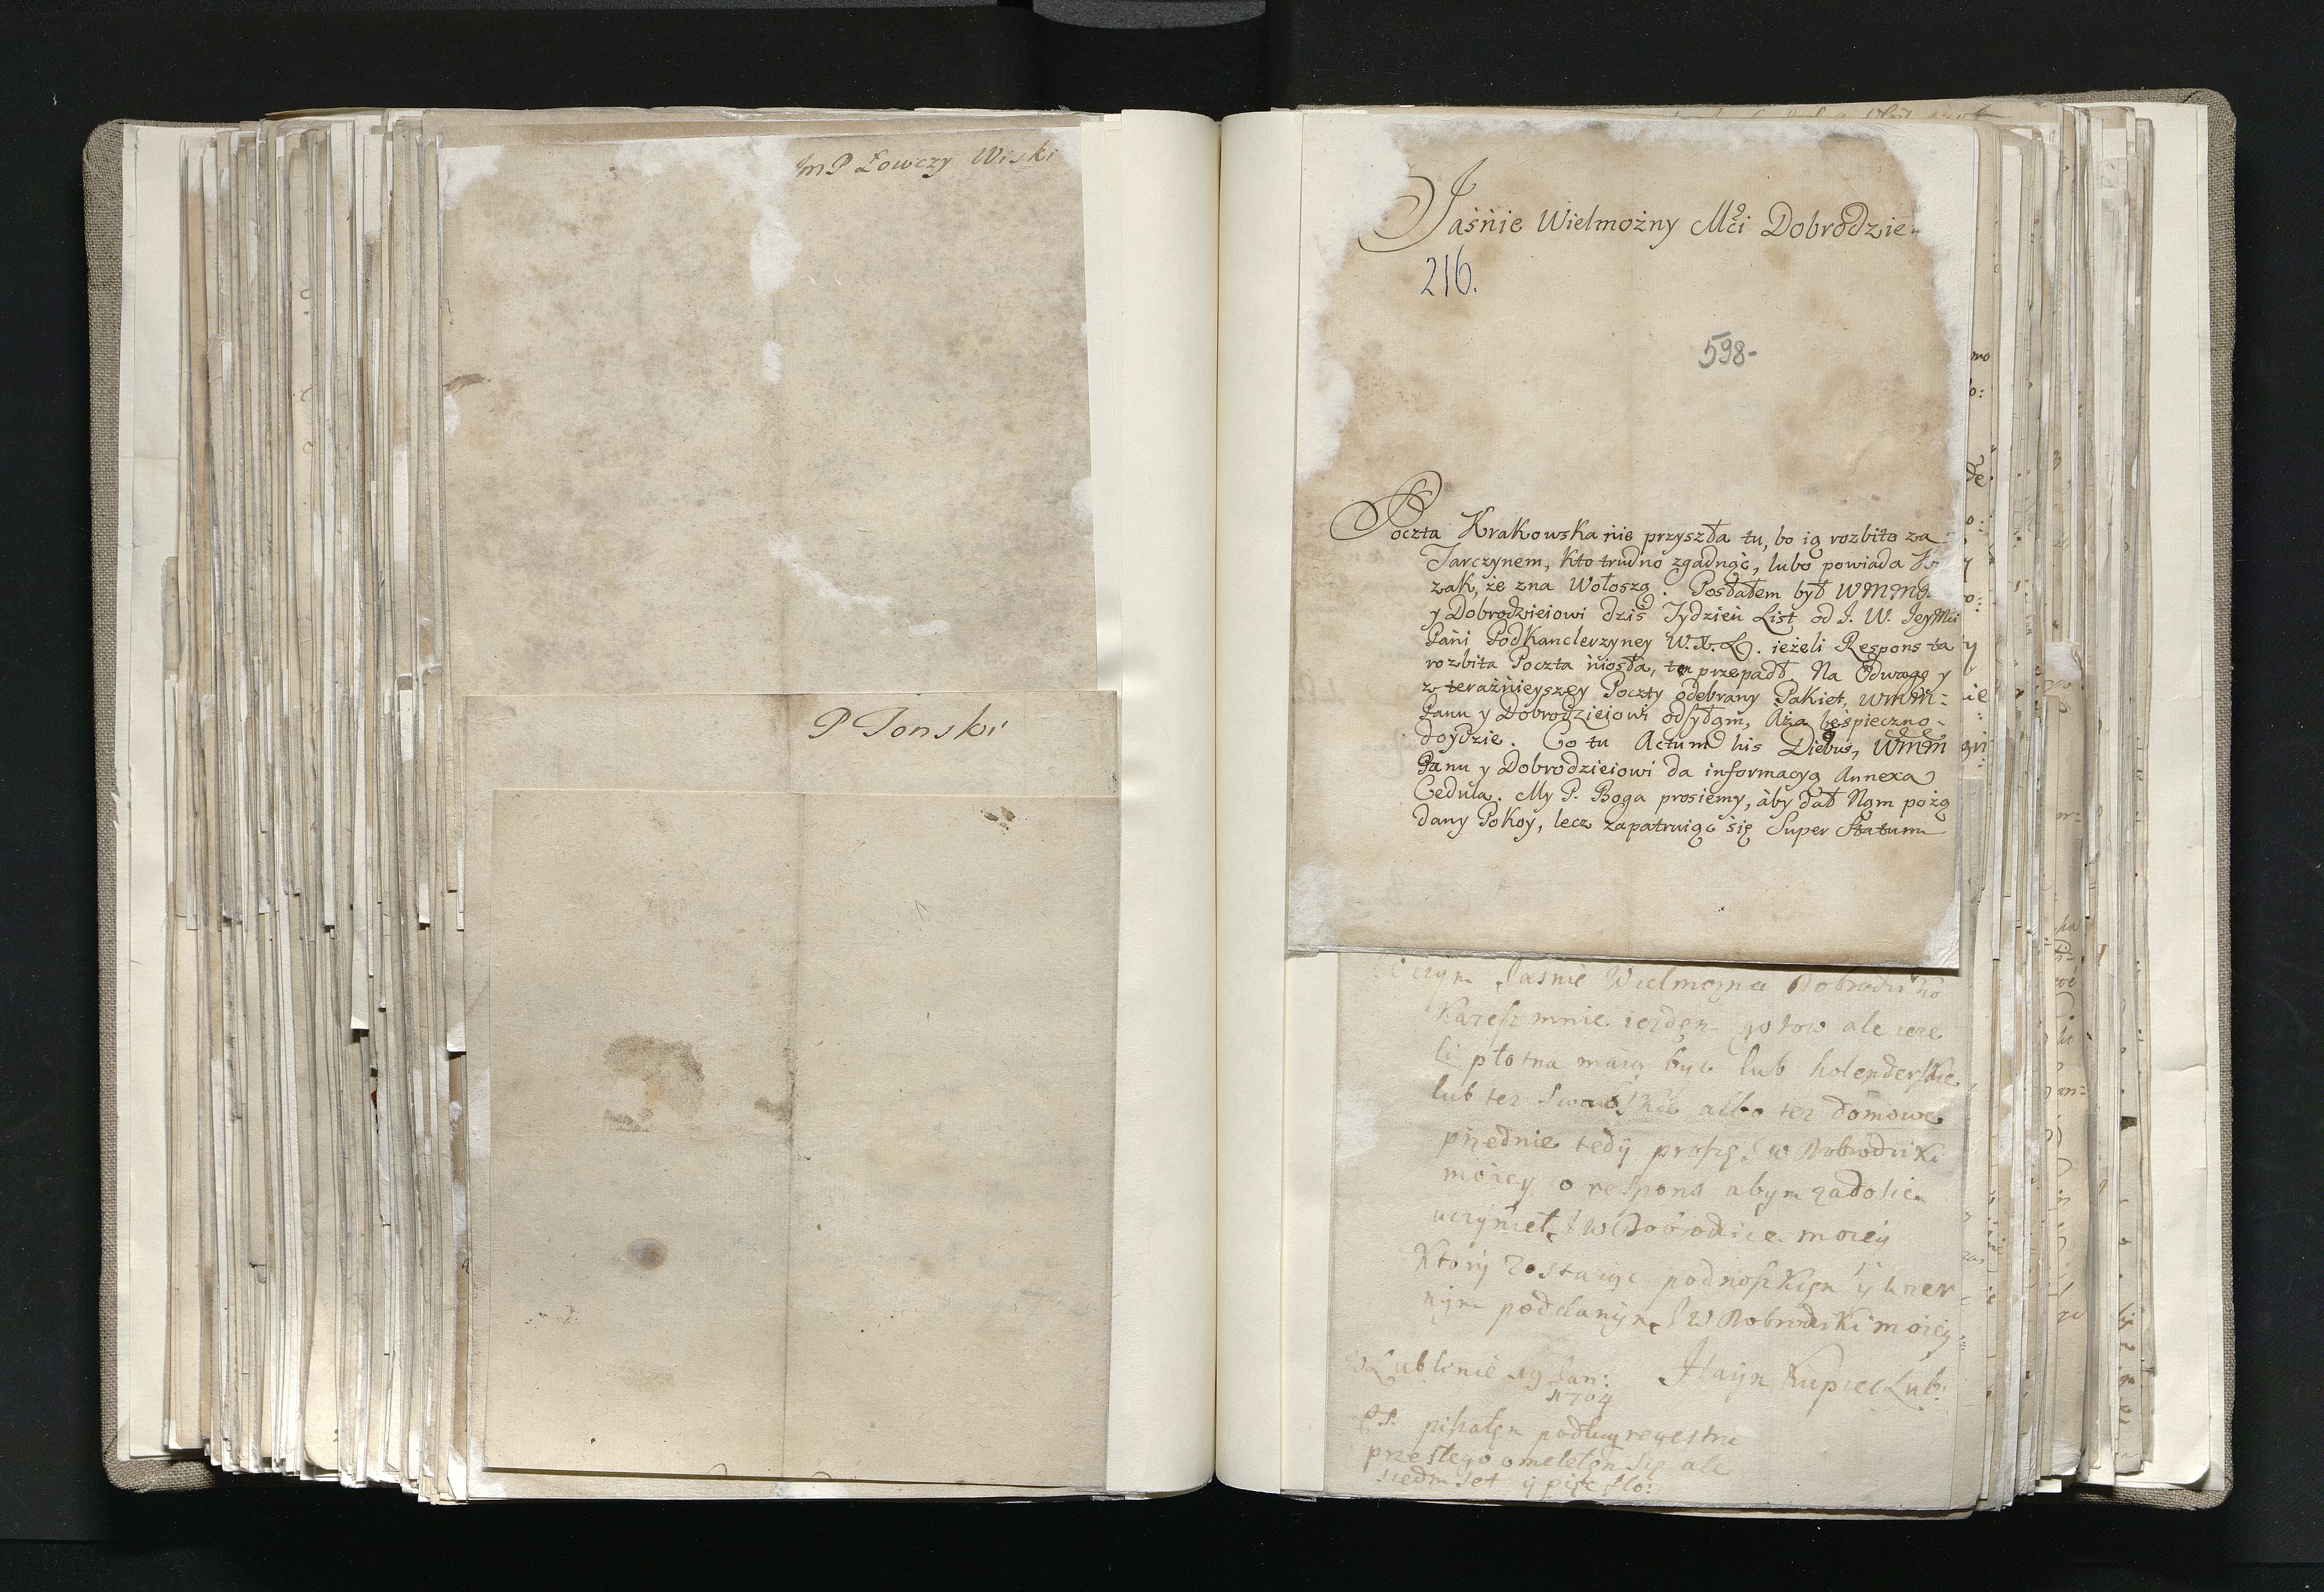 JmP Łowczy Wiski
P Jonski
Jaśnie Wielmożny Mći Dobrodzie
216.
598-
Poczta Krakowska nie przyszła tu, bo ią rozbito za
Tarczynem, kto trudno zgadnąć, lubo powiada
zak, że zna Wołoszą. Posłałem był WMM
y Dobrodzieiowi dziś Tydzień List od J. W. JeyMci
Pani Podkanclerzyney W.X.L. ieżeli Respons ta
rozbita Poczta niosła, ten przepadł. Na Odwagę y
z teraźnieyszey Poczty odebrany Pakiet, WMM:
Panu y Dobrodzieiowi odsyłam, Aza beśpieczno
doydzie. Co tu Actum his Diebus, WMM
Panu y Dobrodzieiowi da informacyą Annexa
Cedula. My P. Boga prosiemy, aby dał Nąm pożą
dany Pokoy, lecz zapatruiąc się Super Statum
Jasnie Wielmozna Dobrodziko
Karesz mnie iezdem gotow ale ieze
li płotna maią byc lub holenderskie
lub tez albo tez domowe
przednie tedy proszę J W Dobrodziki
moiey o respons abym zadosic
uczynieł J W Dobrodice moiey
Ktory zostaiąc podnoszkiem y wier
nym poddanym J W Dobrodziki moiey
W Lublinie 19 Jan:
1704
Hayn Kupiec Lub:
PS. pisałem podług regestru
przesłego omeletem się ale
siedm set y pięc